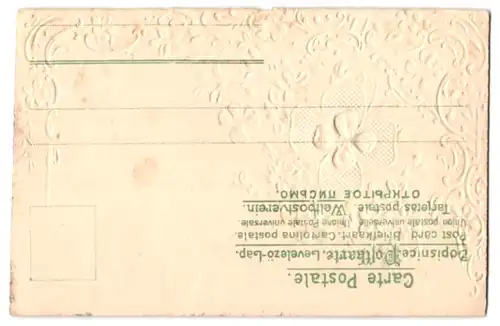 Carte Postale.
Dopisnice. Postkarte. Levelező-Lap.
Post card. Briefkaart. Cartolina postale.
Union postale universelle. Unione Postale universale.
Tarjetas postale. Weltpostverein.
ОТКРЫТОЕ ПИСЬМО,